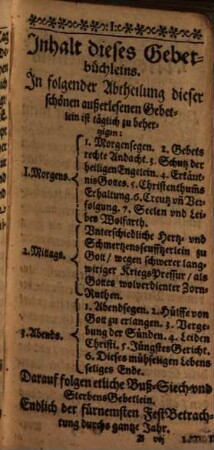 Inhalt dieses Gebet-
büchleins.
In folgender Abtheilung dieser
schönen außerlesenen Gebet-
lein ist täglich zu beher-
tzigen:
1. Morgensegen. 2. Gebets
rechte Andacht. 3. Schutz der
heiligen Engelein. 4. Erkänt-
1. Morgens. nis Gottes. 5. Christenthums
Erhaltung. 6. Creutz uñ Ver-
folgung. 7. Seelen und Lei-
bes Wolfarth.
Unterschiedliche Hertz- und
Schmertzenseufftzerlein zu
2. Mittags. Gott / wegen schwerer lang-
wiriger Kriegs Pressur / als
Gottes wolverdienter Zorn-
Ruthen.
1. Abendsegen. 2. Hülffe von
Got zu erlangen. 3. Verge-
bung der Sünden. 4. Leiden
3. Abends. Christi. 5. Jüngstes Gericht.
6. Dieses mühseligen Lebens
seliges Ende.
Darauf folgen etliche Buß-Siech- und
Sterbens Gebetlein.
Endlich der fürnemsten Fest Betrach-
tung durchs gantze Jahr.